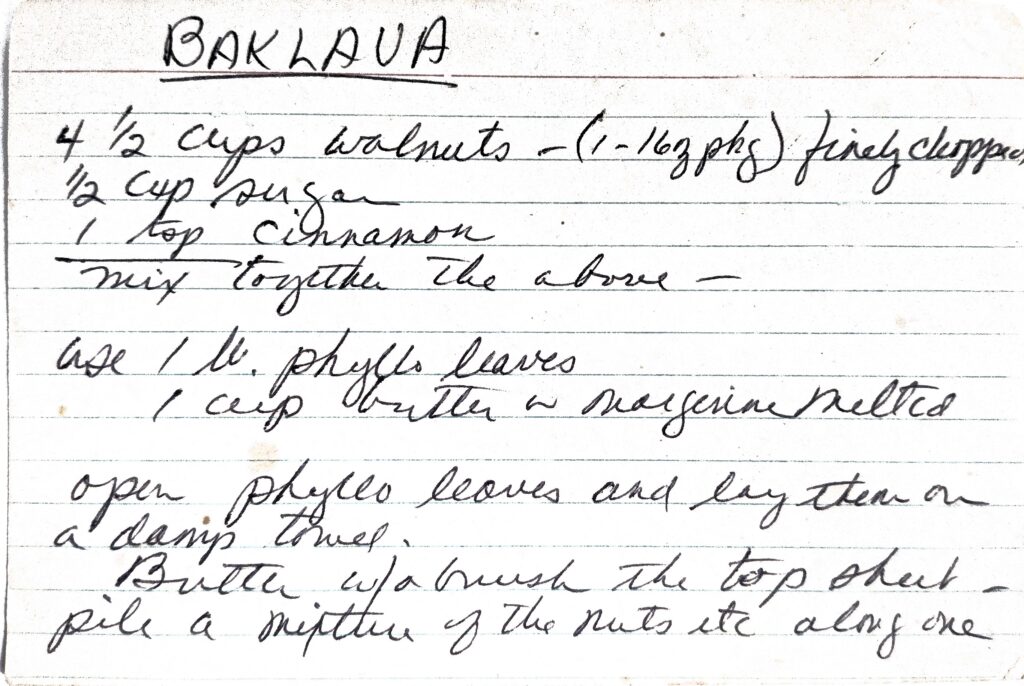 BAKLAVA
4 1/2 cups walnuts - (1-16oz pkg) finely chopped
1/2 cup sugar
1 tsp cinnamon
mix together the above -
use 1 lb. phyllo leaves
1 cup butter or margerine melted
open phyllo leaves and lay them on
a damp towel.
Butter w/a brush the top sheet -
pile a mixture of the nuts etc along one